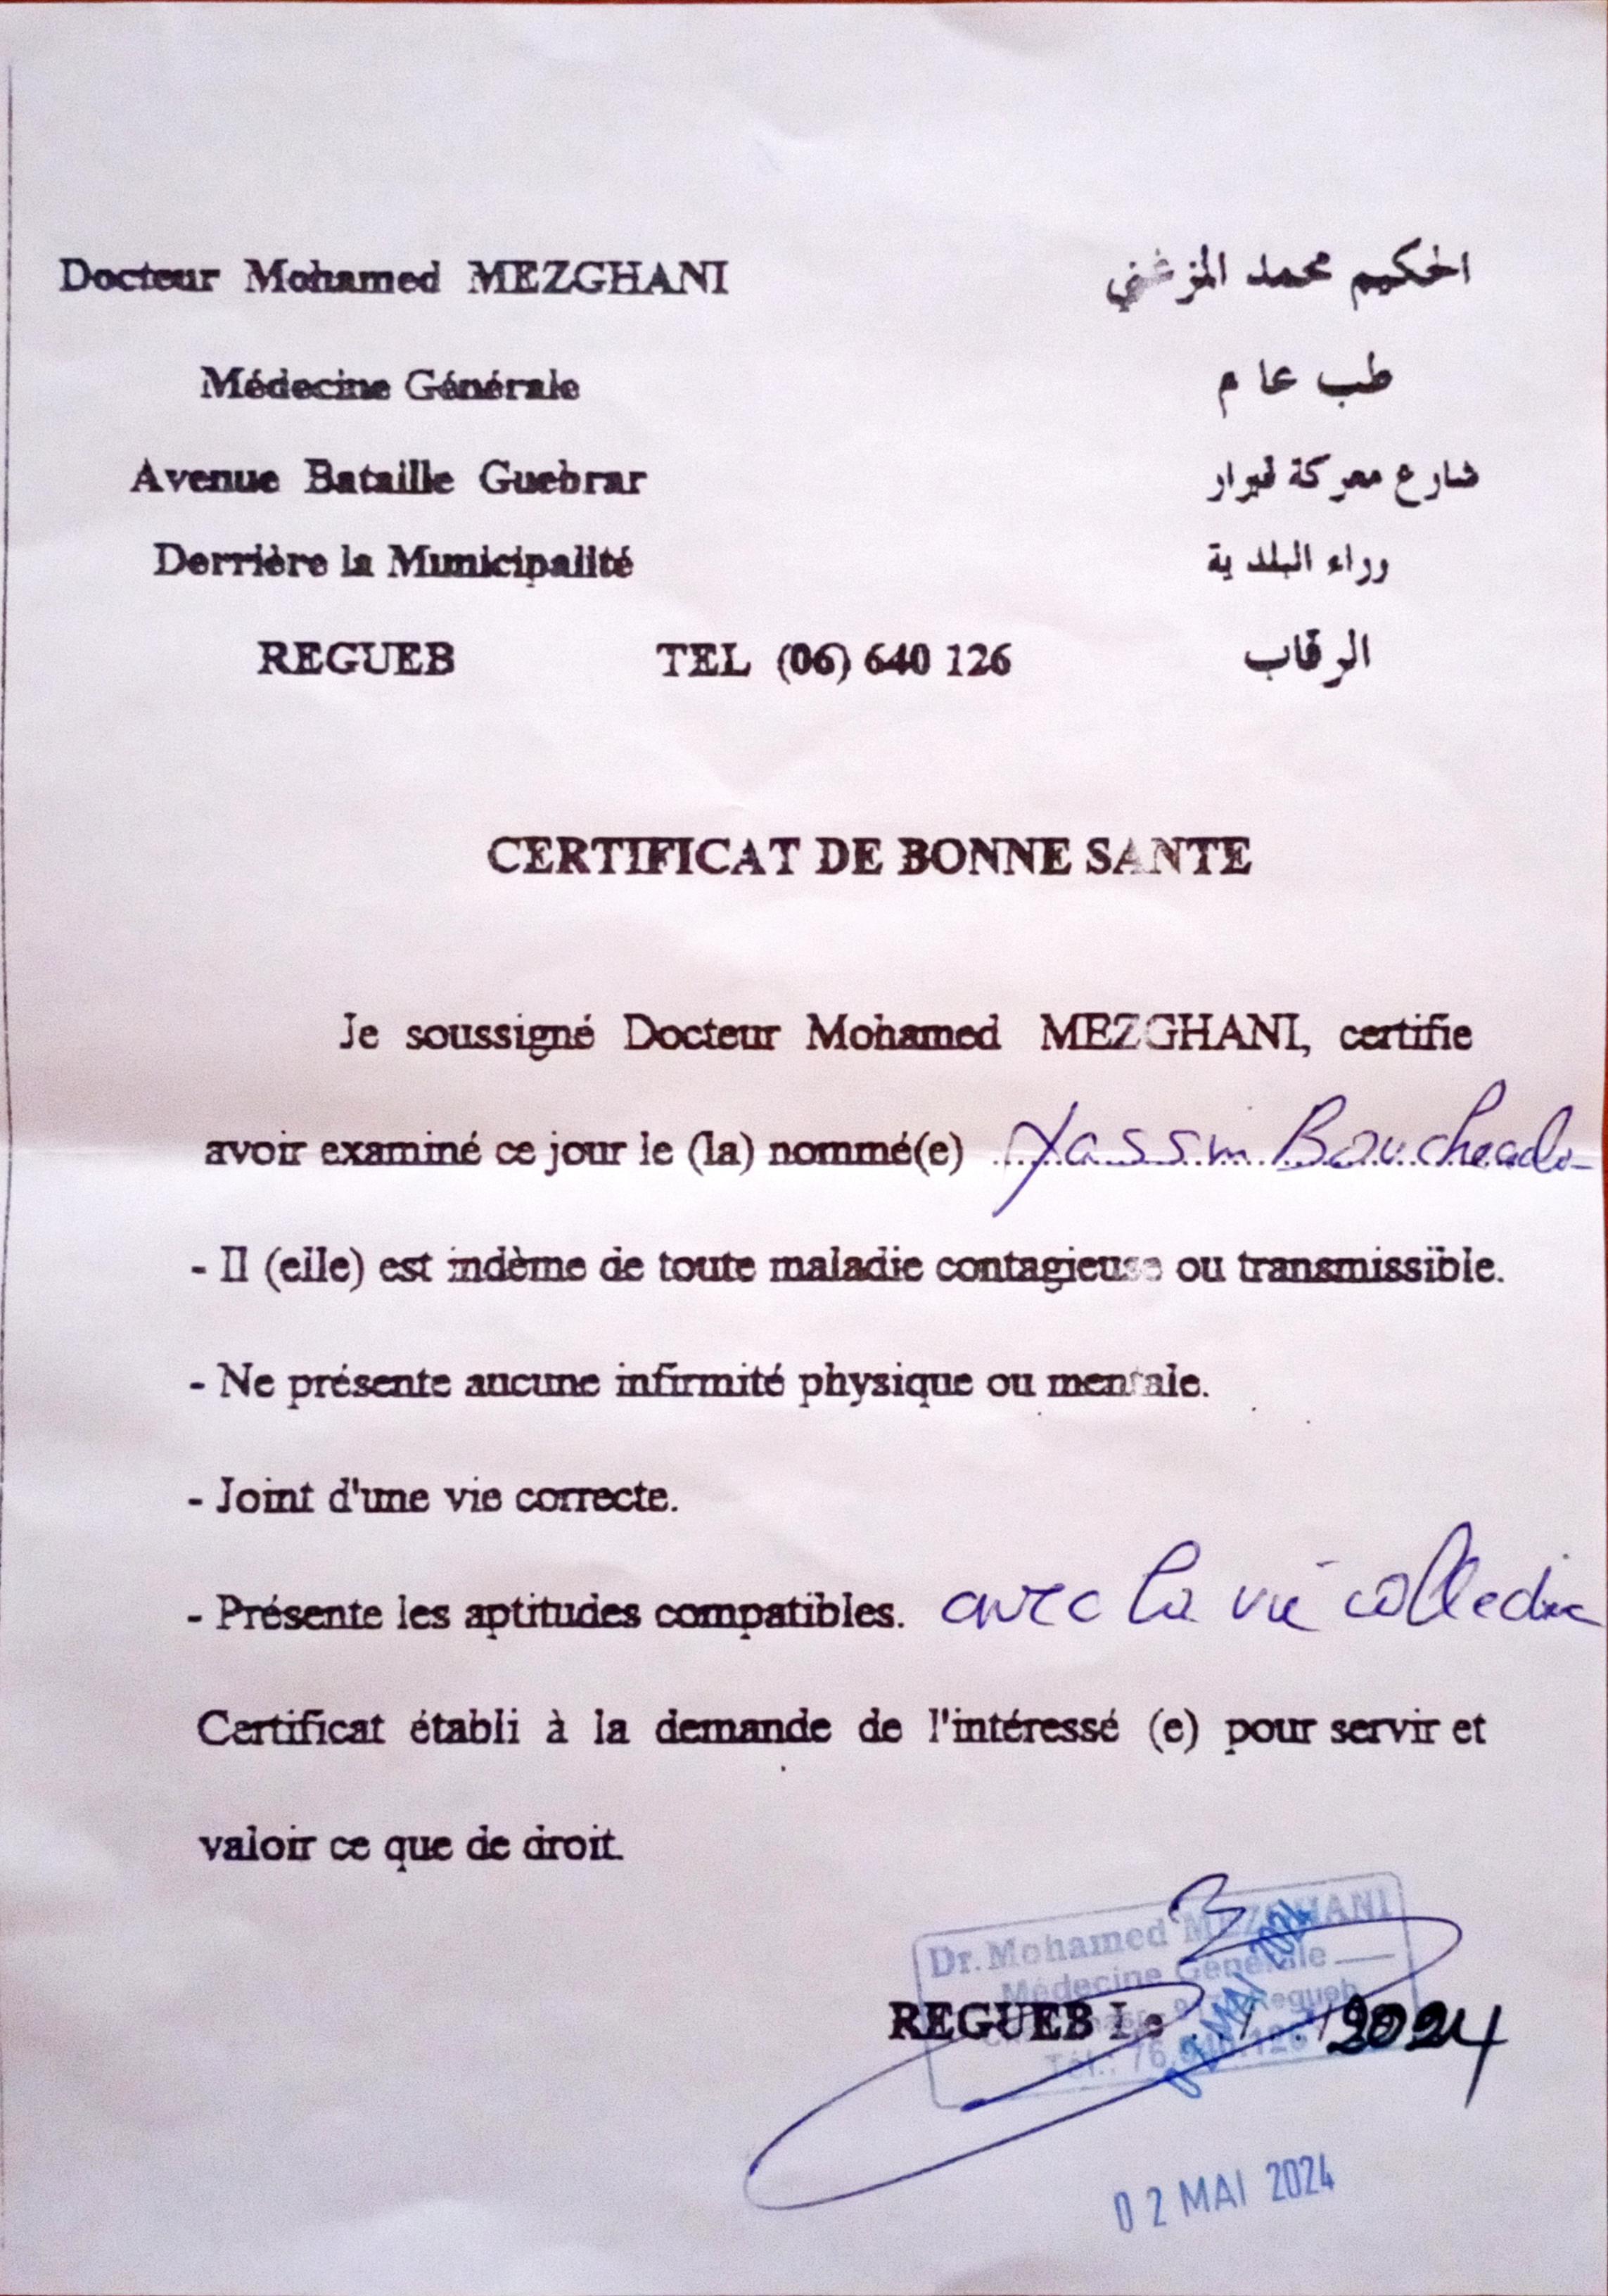 Docteur Mohamed MEZGHANI
الحكيم محمد المزغني
Médecine Générale
طب عام
Avenue Bataille Guebrar
شارع معركة قبرار
Derrière la Municipalité
وراء البلدية
REGUEB TEL (06) 640 126
الرقاب
CERTIFICAT DE BONNE SANTE
Je soussigné Docteur Mohamed MEZGHANI, certifie
avoir examiné ce jour le (la) nommé(e) Yassin
- Il (elle) est indème de toute maladie contagieuse ou transmissible.
- Ne présente aucune infirmité physique ou mentale.
- Joint d'une vie correcte.
- Présente les aptitudes compatibles. avec la vie collective
Certificat établi à la demande de l'intéressé (e) pour servir et
valoir ce que de droit.
Dr. Mohamed MEZGHANI
Médecine Générale
Regueb
REGUEB Le 02 MAI 2024 / 2024
Tél.: 76.640.126
02 MAI 2024